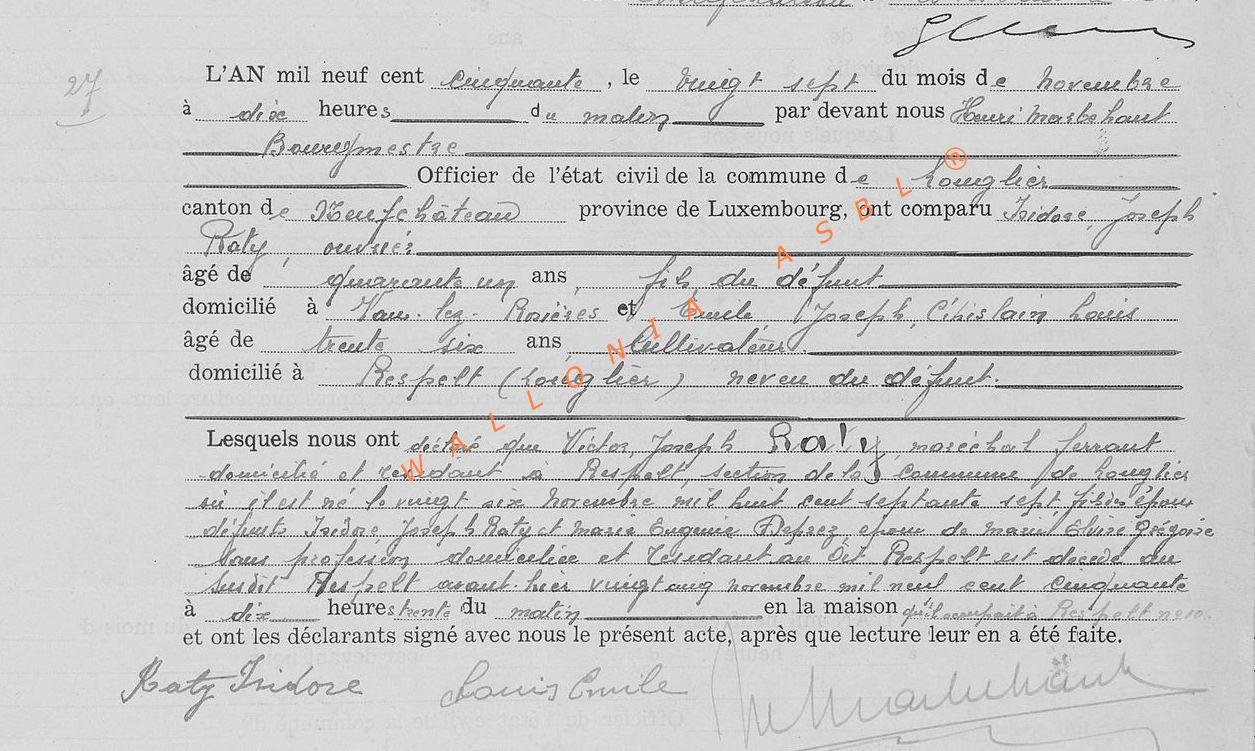 27
L'AN mil neuf cent cinquante, le vingt sept du mois de novembre
à dix heures du matin par devant nous Henri Marbehant
Bourgmestre
Officier de l'état civil de la commune de Longlier
canton de Neufchâteau province de Luxembourg, ont comparu Isidore, Joseph
Raty, ouvrier
âgé de quarante un ans, fils du défunt
domicilié à Vaux-lez-Rosières et Emile, Joseph, Ghislain Louis
âgé de trente six ans, Cultivateur
domicilié à Respelt (Longlier) neveu du défunt.
Lesquels nous ont déclaré que Victor, Joseph Raty, maréchal ferrant
domicilié et résidant à Respelt, section de la commune de Longlier
où il est né le vingt six novembre mil huit cent septante sept, fils des époux
défunts Isidore, Joseph Raty et Marie Eugénie Deprez, époux de Marie Elvire Grégoire
sans profession domiciliée et résidant au dit Respelt est décédé au
susdit Respelt avant-hier vingt cinq novembre mil neuf cent cinquante
à dix heures trente du matin en la maison qu'il occupait à Respelt n° 10.
et ont les déclarants signé avec nous le présent acte, après que lecture leur en a été faite.
Raty Isidore Louis Emile Marbehant
WALLONIA ASBL ®